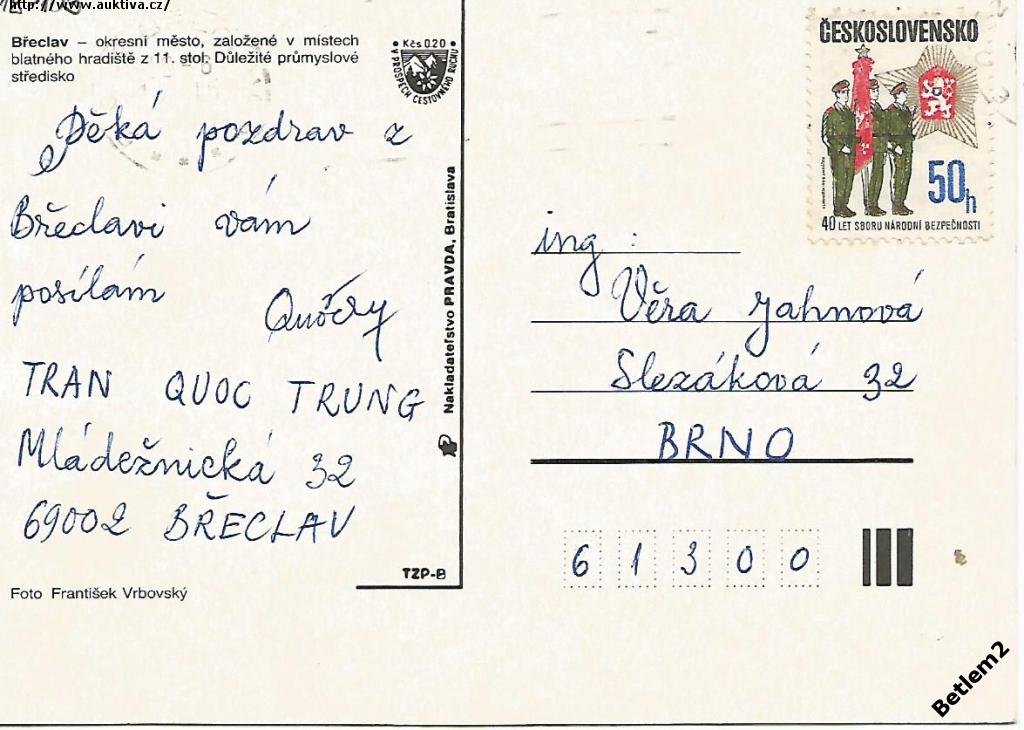 http://www.auktiva.cz/
Břeclav – okresní město, založené v místech
blatného hradiště z 11. stol. Důležité průmyslové
středisko
Kčs 0.20
V PROSPĚCH CESTOVNÉHO RUCHU
Děká pozdrav z
Břeclavi vám
posílám
TRAN QUOC TRUNG
Mládežnická 32
69002 BŘECLAV
Foto František Vrbovský
TZP-B
Nakladatelstvo PRAVDA, Bratislava
ČESKOSLOVENSKO
50h
40 LET SBORU NÁRODNÍ BEZPEČNOSTI
ing :
Věra Jahnová
Slezáková 32
BRNO
6 1 3 0 0
Betlem2